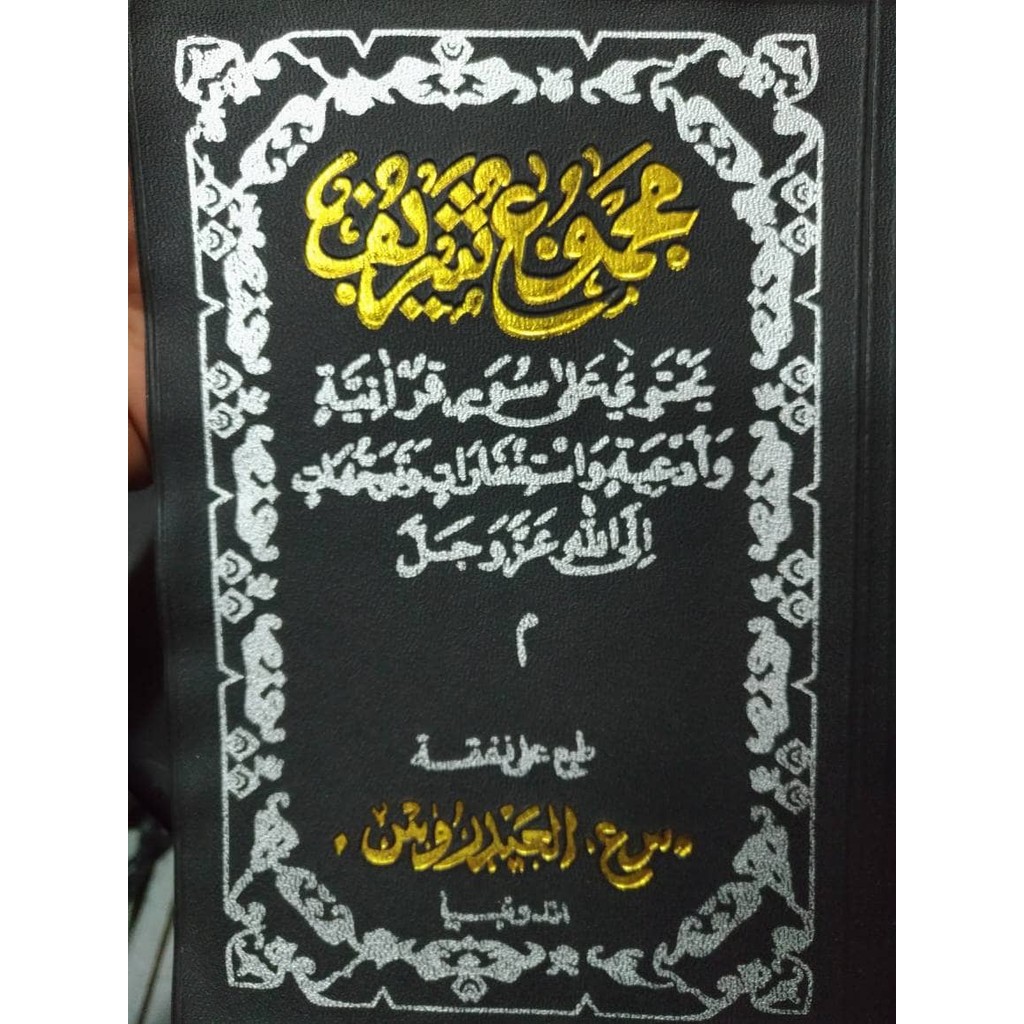 مجموع شريف
يَحْتَوِي عَلَى سُوَرٍ قُرْآنِيَةٍ
وَأَدْعِيَةٍ وَاسْتِغْفَارَاتٍ وَتَوَسُّلَاتٍ
إِلَى اللهِ عَزَّ وَجَلَّ
م
طبع على نفقة
س.ع. العيدروس
اندونيسيا